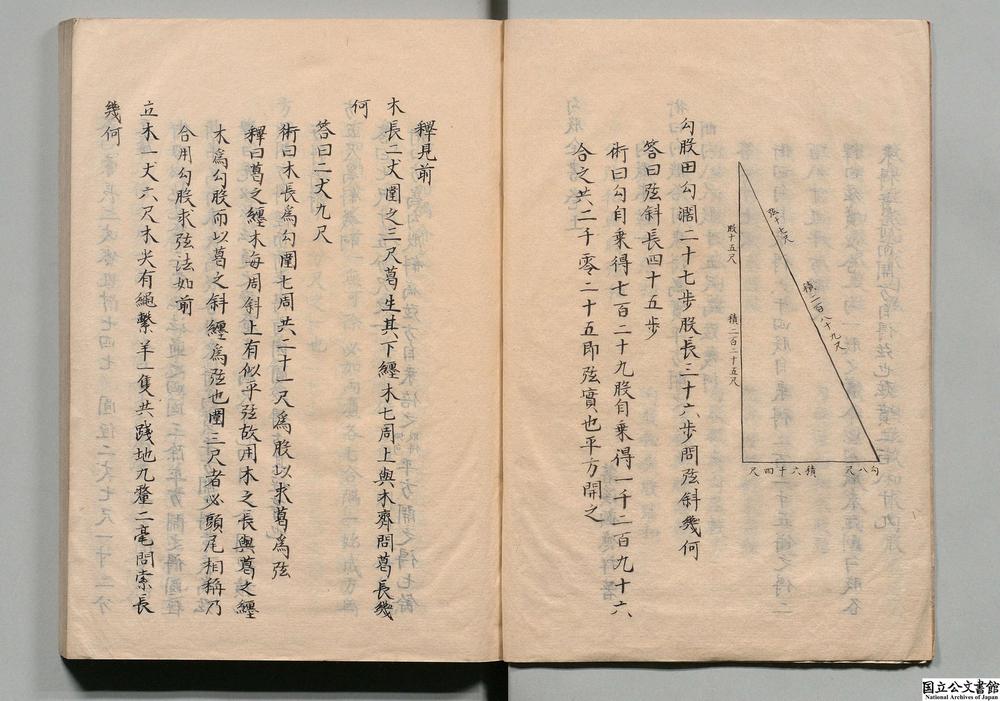 弦十七尺
積二百八十九尺
股十五尺
積二百二十五尺
勾八尺
積六十四尺
勾股田勾濶二十七步股長三十六步問弦斜幾何
答曰弦斜長四十五步
術曰勾自乘得七百二十九股自乘得一千二百九十六
合之共二千零二十五即弦實也平方開之
釋見前
木長二丈圍之三尺葛生其下纏木七周上與木齊問葛長幾
何
答曰二丈九尺
術曰木長爲勾圍七周共二十一尺爲股以求葛爲弦
釋曰葛之纏木每周斜上有似乎弦故用木之長與葛之纏
木爲勾股而以葛之斜纏爲弦也圍三尺者必頭尾相稱乃
合用勾股求弦法如前
立木一丈六尺木尖有繩繫羊一隻共踐地九釐二毫問索長
幾何
国立公文書館
National Archives of Japan